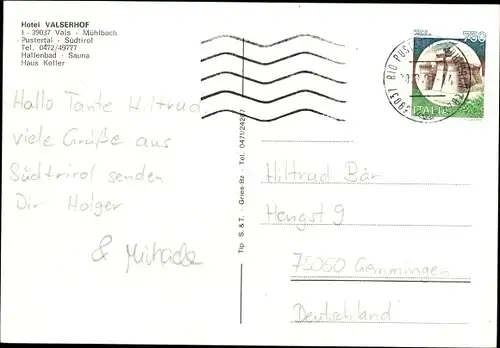 Hotel VALSERHOF
I - 39037 Vals - Mühlbach
Pustertal - Südtirol
Tel. 0472/49777
Hallenbad - Sauna
Haus Keller
Hallo Tante Hiltrud,
viele Grüße aus
Südtirol senden
Dir Holger
& Michaela
Tip. S. & T. - Gries-Bz - Tel. 0471/24247
750
ITALIA
39037 RIO PUST
Hiltrud Bär
Hengst 9
75050 Gemmingen
Deutschland